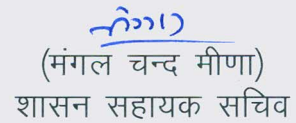 (मंगल चन्द मीणा)
शासन सहायक सचिव